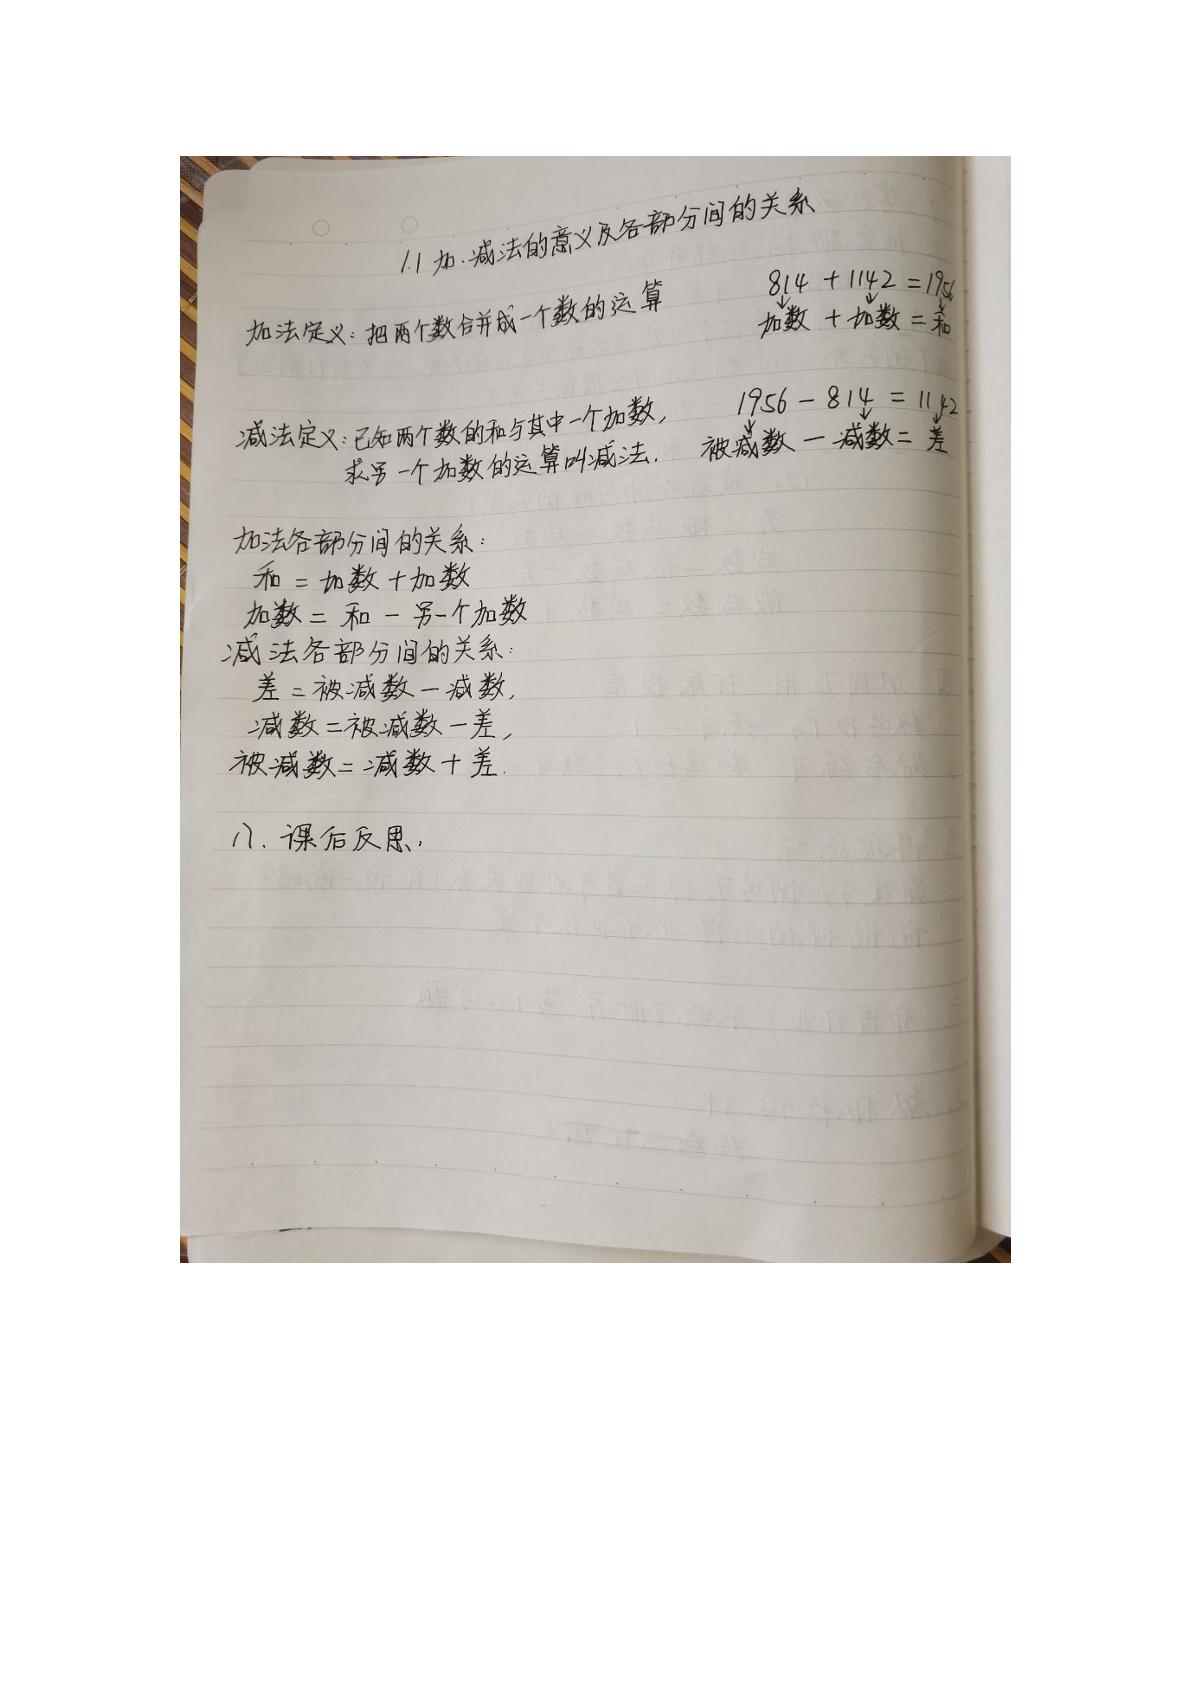 1.1 加、减法的意义及各部分间的关系
加法定义：把两个数合并成一个数的运算
814 + 1142 = 1956
加数 + 加数 = 和
减法定义：已知两个数的和与其中一个加数，
求另一个加数的运算叫减法.
1956 - 814 = 1142
被减数 - 减数 = 差
加法各部分间的关系：
和 = 加数 + 加数
加数 = 和 - 另一个加数
减法各部分间的关系：
差 = 被减数 - 减数，
减数 = 被减数 - 差，
被减数 = 减数 + 差.
八. 课后反思：